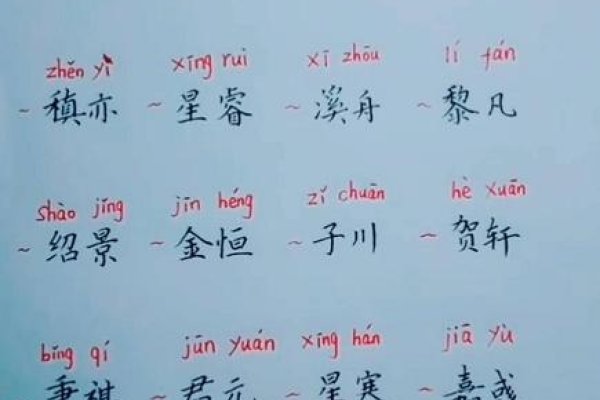 zhěn yì xīng ruì xī zhōu lí fán
~ 稹亦 ~ 星睿 ~ 溪舟 ~ 黎凡
shào jǐng jīn héng zǐ chuān hè xuān
~ 绍景 ~ 金恒 ~ 子川 ~ 贺轩
bǐng qí jūn yuán xīng hán jiā yù
秉祺 ~ 君元 ~ 星寒 ~ 嘉